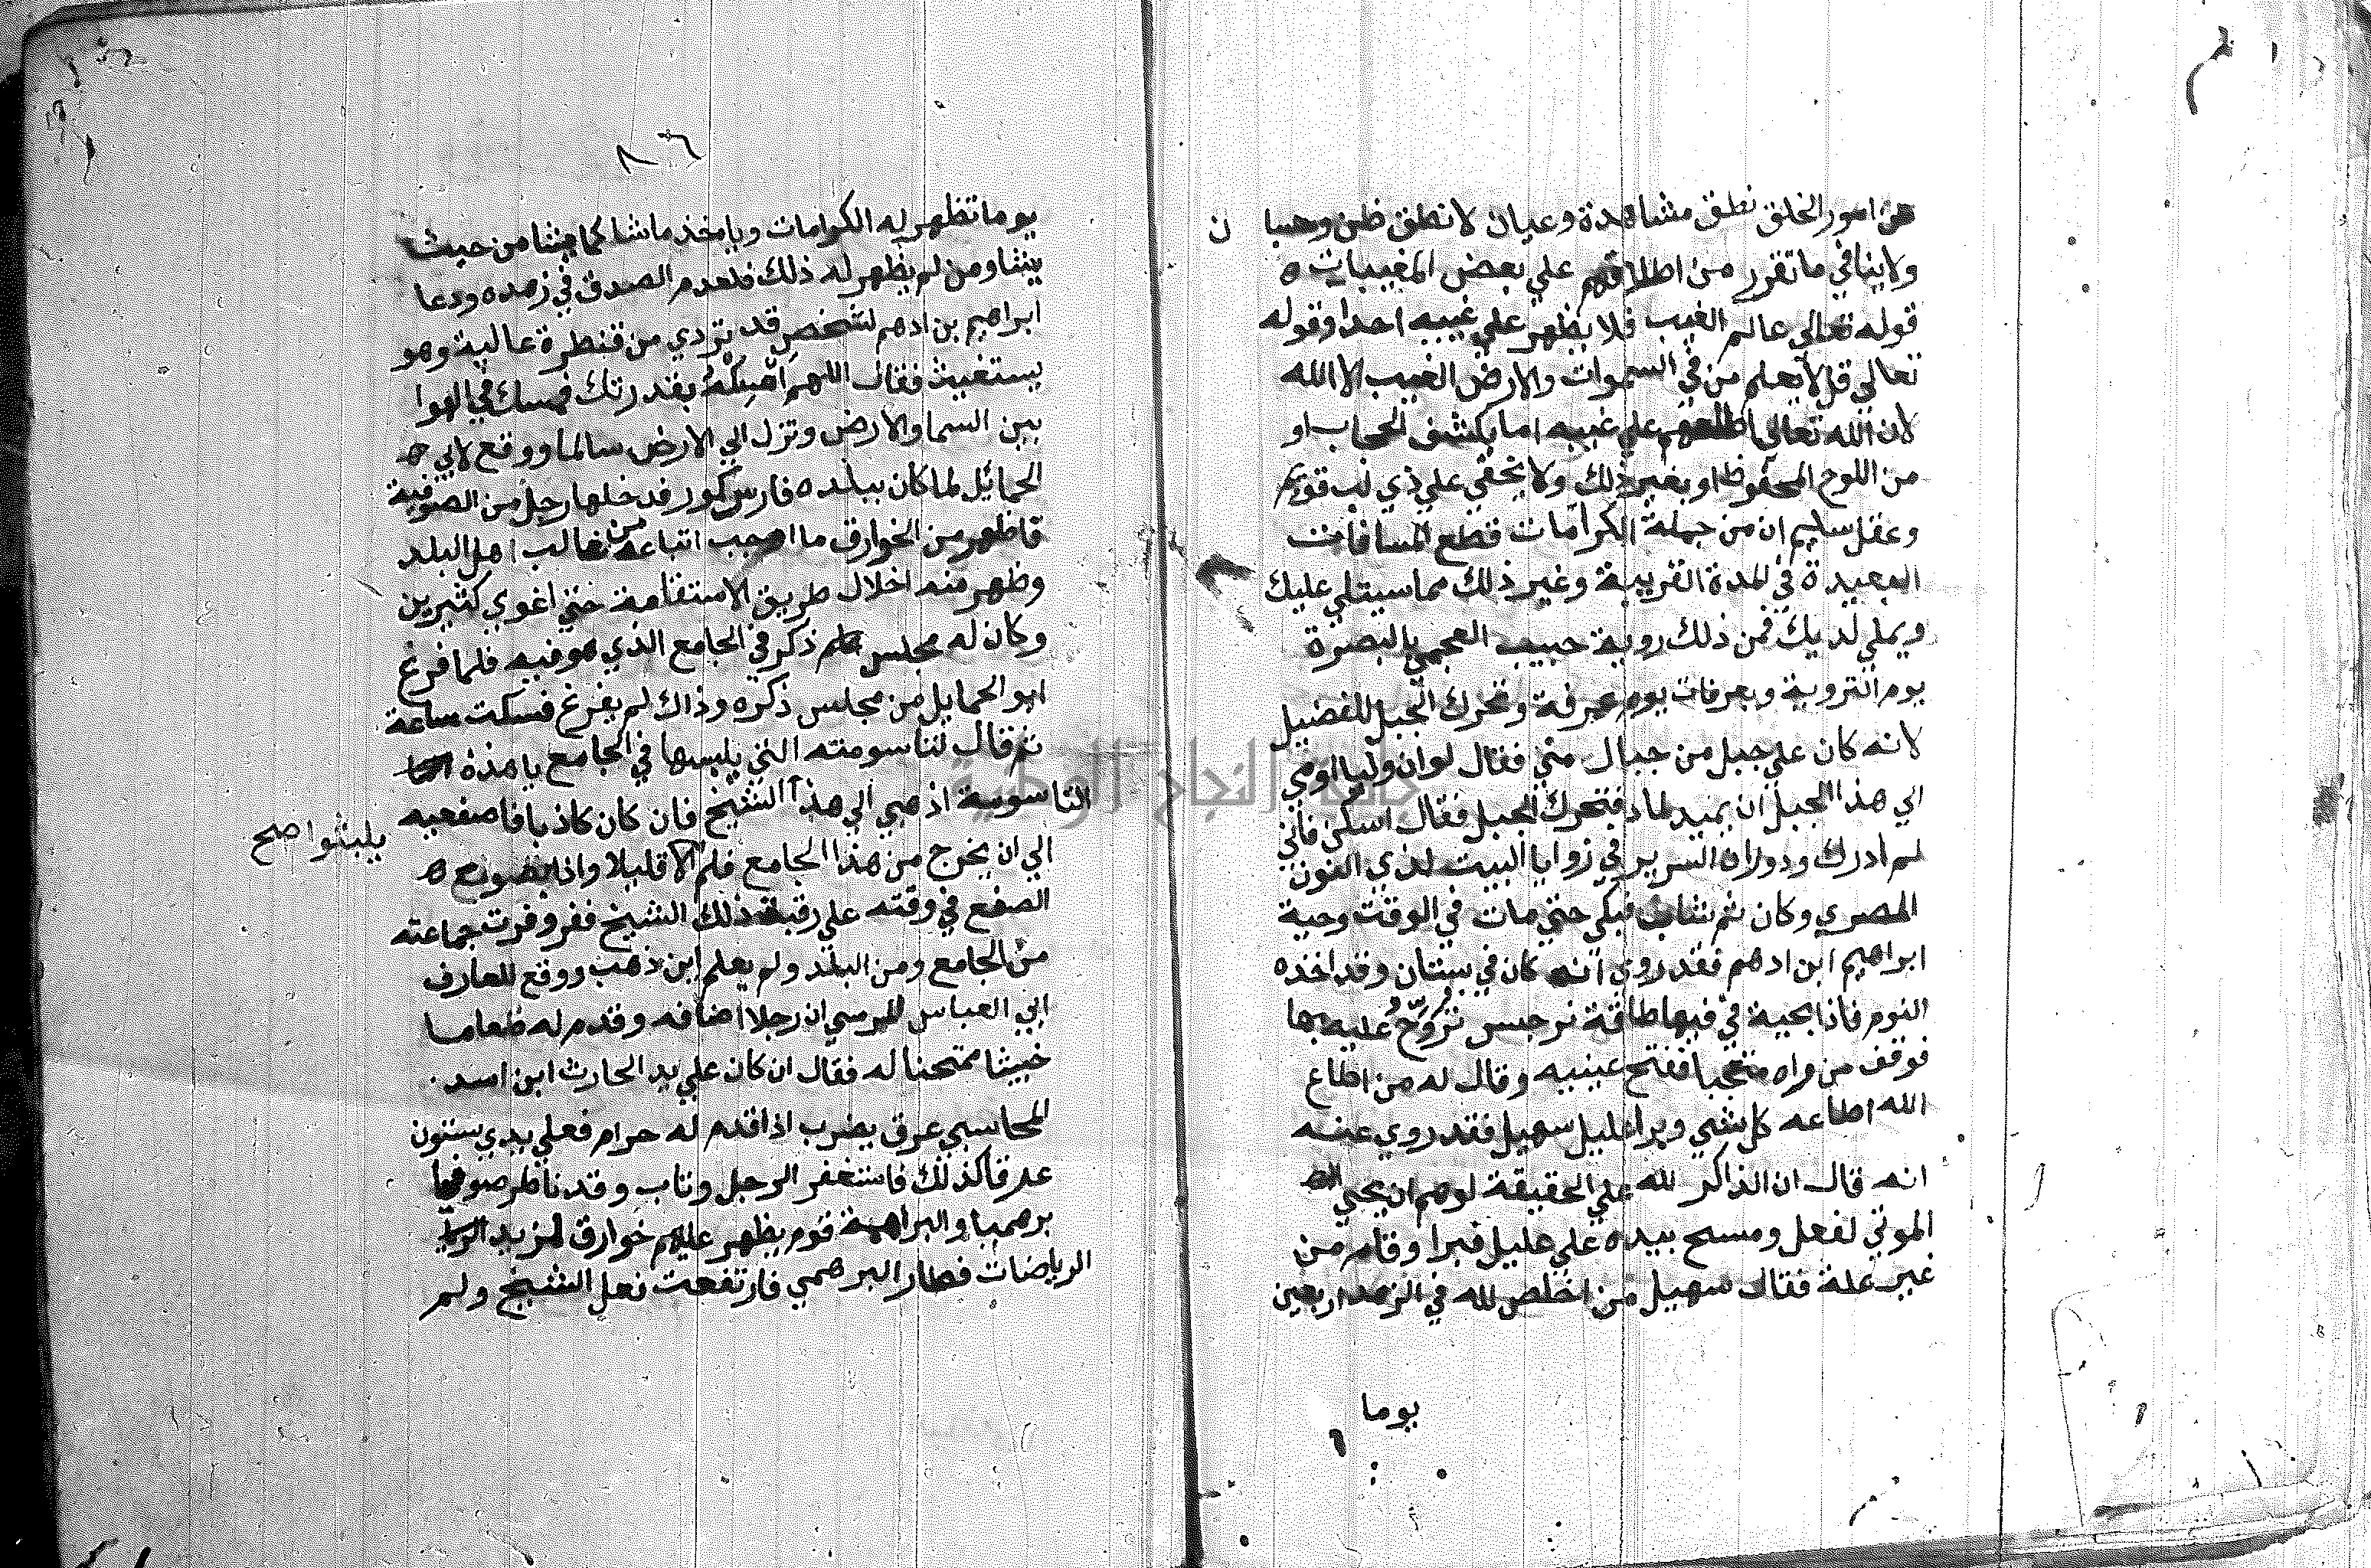 من امور الخلق نطق مشاهدة وعيان لا نطق ظن وحسبا ن
ولا ينافي ما تقرر من اطلاقهم علي بعض المغيبات ه
قوله تعالي عالم الغيب فلا يظهر علي غيبه احدا وقوله
تعالي قل لا يعلم من في السموات والارض الغيب الا الله
لان الله تعالي اطلعهم علي غيبه اما بكشف الحجاب او
من اللوح المحفوظ او بغير ذلك ولا يخفي علي ذي لب قويم
وعقل سليم ان من جملة الكرامات قطع المسافات
البعيدة في المدة القريبة وغير ذلك مما سيتلي عليك
ويملي لديك فمن ذلك روية حبيب العجمي بالبصرة
يوم التروية وبعرفات يوم عرفة وتحرك الجبل للفضيل
لانه كان علي جبل من جبال مني فقال لو ان وليا اومي
الي هذا الجبل ان يميد لماد فتحرك الجبل فقال اسكن فاني
لم ادرك ودوران السرير في زوايا البيت لذي النون
المصري وكان ثم شاب فبكي حتي مات في الوقت وحية
ابراهيم ابن ادهم فقد روي انه كان في بستان وقد اخذه
النوم فاذا بحية في فيها طاقة نرجس تروح عليه بها
فوقف من راه متعجبا ففتح عينيه وقال له من اطاع
الله اطاعه كل شي وبرا عليل سهيل فقد روي عنه
انه قال ان الذاكر لله علي الحقيقة لو هم ان يحيي
الموتي لفعل ومسح بيده علي عليل فبرا وقام من
غير علة فقال سهيل من اخلص لله في الزهد اربعين
يوما
٨٦
يوما تظهر له الكرامات وياخذ ما شا كما يشا من حيث
يشا ومن لم يظهر له ذلك فلعدم الصدق في زهده ودعا
ابراهيم بن ادهم لشخص قد تردي من قنطرة عالية وهو
يستغيث فقال اللهم امسكه بقدرتك فمسك في الهوا
بين السما والارض ونزل الي الارض سالما ووقع لابي
الحمائل لما كان ببلده فارسكور فدخلها رجل من الصوفية
فاظهر من الخوارق ما اوجب اتباعه من غالب اهل البلد
وظهر منه اخلال طريق الاستقامة حتي اغوي كثيرين
وكان له مجلس ذكر في الجامع الذي هو فيه فلما فرغ
ابو الحمايل من مجلس ذكره وذاك لم يفرغ فسكت ساعة
ثم قال لتاسومته التي يلبسها في الجامع يا هذه
التاسومة اذهبي الي هذا الشيخ فان كان كاذبا فاصفعيه
الي ان يخرج من هذا الجامع فلم يلبثوا صح الا قليلا واذا بصوت
الصفع في وقته علي رقبة ذلك الشيخ ففر وفرت جماعته
من الجامع ومن البلد ولم يعلم اين ذهب ووقع للعارف
ابي العباس المرسي ان رجلا اضافه وقدم له طعاما
خبيثا ممتحنا له فقال ان كان علي يد الحارث ابن اسد
المحاسبي عرق يضرب اذا قدم له حرام فعلي يدي ستون
عرقا كذلك فاستغفر الرجل وتاب وقد ناظر صوفي
برهميا والبراهمة قوم يظهر عليهم خوارق لمزيد
الرياضات فطار البرهمي فارتفعت نعل الشيخ ولم